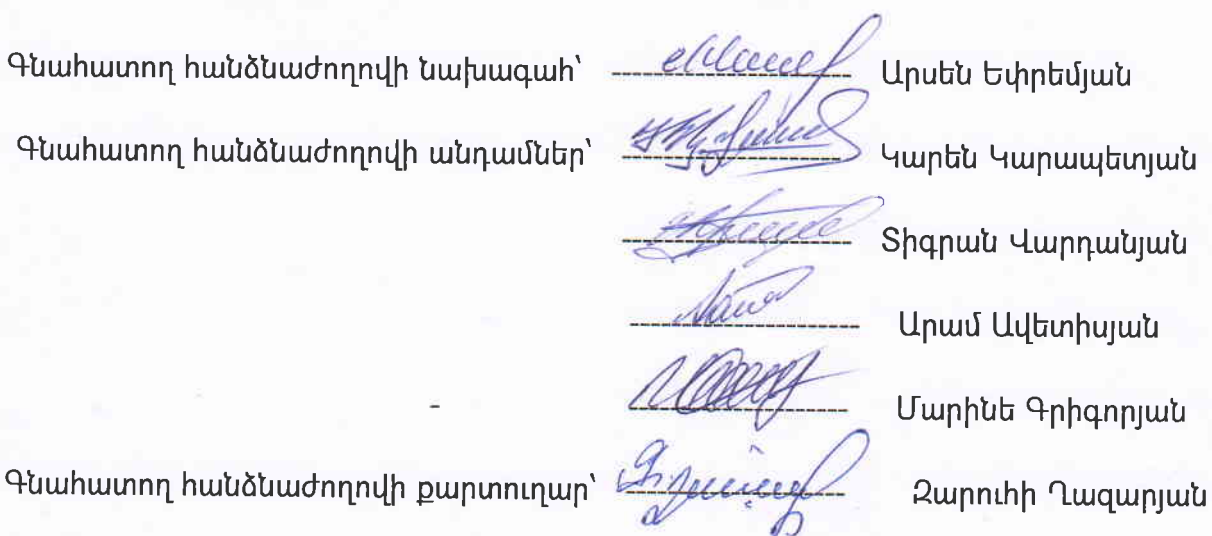 Գնահատող հանձնաժողովի նախագահ՝ Արսեն Եփրեմյան
Գնահատող հանձնաժողովի անդամներ՝ Կարեն Կարապետյան
Տիգրան Վարդանյան
Արամ Ավետիսյան
Մարինե Գրիգորյան
Գնահատող հանձնաժողովի քարտուղար՝ Զարուհի Ղազարյան